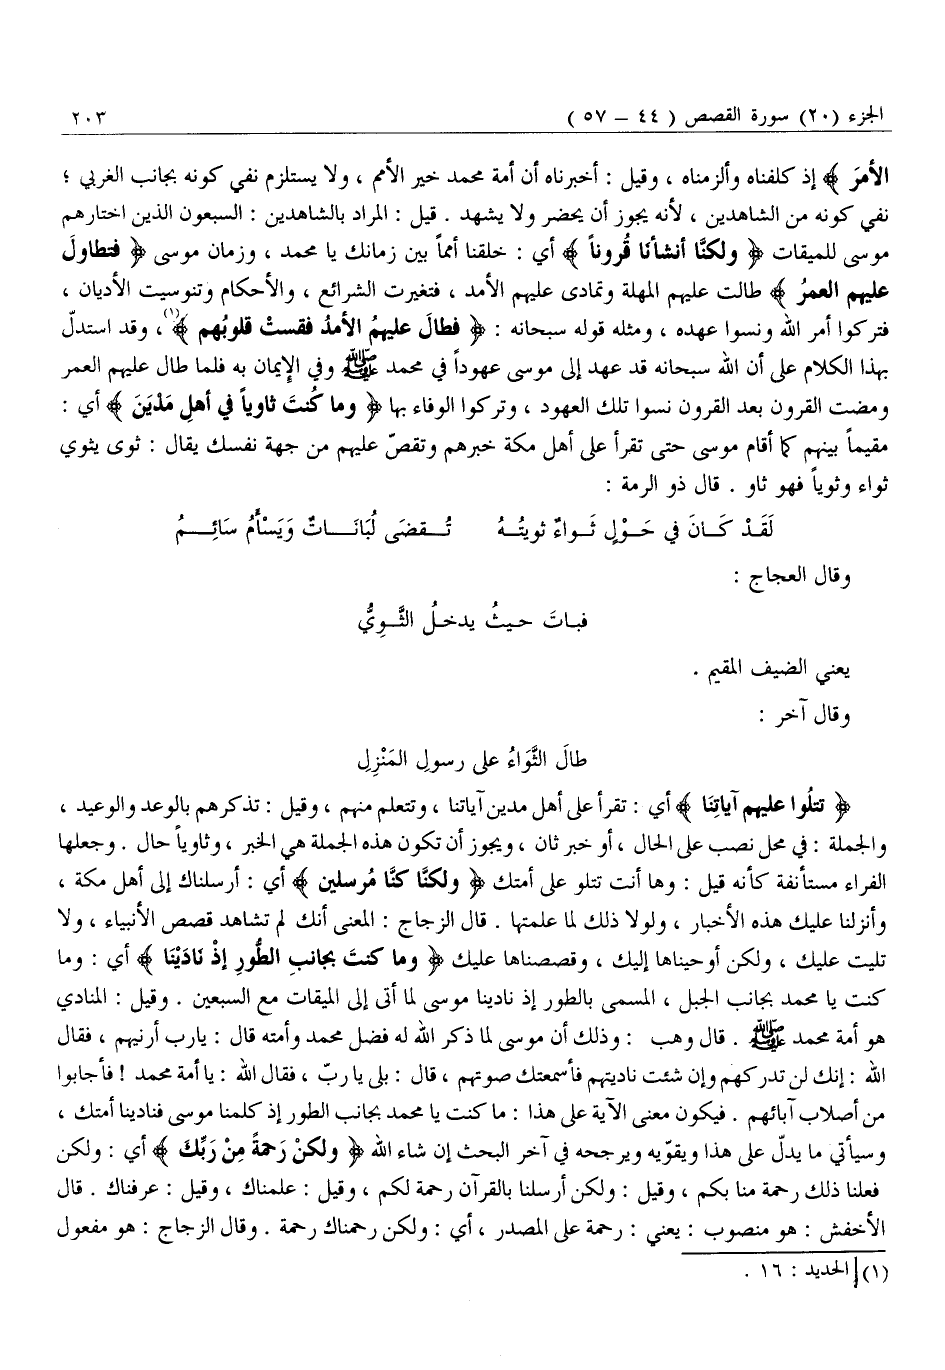 الجزء (٢٠) سورة القصص ( ٤٤ – ٥٧ ) ٢٠٣
الأمرَ ﴾ إذ كلفناه وألزمناه ، وقيل : أخبرناه أن أمة محمد خير الأمم ، ولا يستلزم نفي كونه بجانب الغربي ؛
نفي كونه من الشاهدين ، لأنه يجوز أن يحضر ولا يشهد . قيل : المراد بالشاهدين : السبعون الذين اختارهم
موسى للميقات ﴿ ولكنَّا أنشأنَا قُروناً ﴾ أي : خلقنا أمماً بين زمانك يا محمد ، وزمان موسى ﴿ فتطاولَ
عليهم العمرُ ﴾ طالت عليهم المهلة وتمادى عليهم الأمد ، فتغيرت الشرائع ، والأحكام وتنوسيت الأديان ،
فتركوا أمر الله ونسوا عهده ، ومثله قوله سبحانه : ﴿ فطالَ عليهمُ الأمدُ فقستْ قلوبُهم ﴾(١) ، وقد استدلّ
بهذا الكلام على أن الله سبحانه قد عهد إلى موسى عهوداً في محمد ﷺ وفي الإيمان به فلما طال عليهم العمر
ومضت القرون بعد القرون نسوا تلك العهود ، وتركوا الوفاء بها ﴿ وما كُنتَ ثاوياً في أهلِ مَدْيَنَ ﴾ أي :
مقيماً بينهم كما أقام موسى حتى تقرأ على أهل مكة خبرهم وتقصّ عليهم من جهة نفسك يقال : ثوى يثوي
ثواء وثوياً فهو ثاو . قال ذو الرمة :
لَقَدْ كَــانَ في حَــوْلٍ ثَــواءٌ ثويتُــهُ تُــقضَى لُبَانَــاتٌ وَيَسْأَمُ سَائِــمُ
وقال العجاج :
فبـاتَ حيـثُ يدخـلُ الثَّــوِيُّ
يعني الضيف المقيم .
وقال آخر :
طالَ الثَّوَاءُ على رسولِ المَنْزِلِ
﴿ تتلُوا عليهم آياتِنَا ﴾ أي : تقرأ على أهل مدين آياتنا ، وتتعلم منهم ، وقيل : تذكرهم بالوعد والوعيد ،
والجملة : في محل نصب على الحال ، أو خبر ثان ، ويجوز أن تكون هذه الجملة هي الخبر ، وثاوياً حال . وجعلها
الفراء مستأنفة كأنه قيل : وها أنت تتلو على أمتك ﴿ ولكنَّا كنَّا مُرسلين ﴾ أي : أرسلناك إلى أهل مكة ،
وأنزلنا عليك هذه الأخبار ، ولولا ذلك لما علمتها . قال الزجاج : المعنى أنك لم تشاهد قصص الأنبياء ، ولا
تليت عليك ، ولكن أوحيناها إليك ، وقصصناها عليك ﴿ وما كنتَ بجانبِ الطُّورِ إذْ نَادَيْنَا ﴾ أي : وما
كنت يا محمد بجانب الجبل ، المسمى بالطور إذ نادينا موسى لما أتى إلى الميقات مع السبعين . وقيل : المنادي
هو أمة محمد ﷺ . قال وهب : وذلك أن موسى لما ذكر الله له فضل محمد وأمته قال : يارب أرنيهم ، فقال
الله : إنك لن تدركهم وإن شئت ناديتهم فأسمعتك صوتهم ، قال : بلى يا ربّ ، فقال الله : يا أمة محمد ! فأجابوا
من أصلاب آبائهم . فيكون معنى الآية على هذا : ما كنت يا محمد بجانب الطور إذ كلمنا موسى فنادينا أمتك ،
وسيأتي ما يدلّ على هذا ويقوّيه ويرجحه في آخر البحث إن شاء الله ﴿ ولكنْ رَحمةً مِنْ رَبِّكَ ﴾ أي : ولكن
فعلنا ذلك رحمة منا بكم ، وقيل : ولكن أرسلنا بالقرآن رحمة لكم ، وقيل : علمناك ، وقيل : عرفناك . قال
الأخفش : هو منصوب : يعني : رحمة على المصدر ، أي : ولكن رحمناك رحمة . وقال الزجاج : هو مفعول
(١) الحديد : ١٦ .